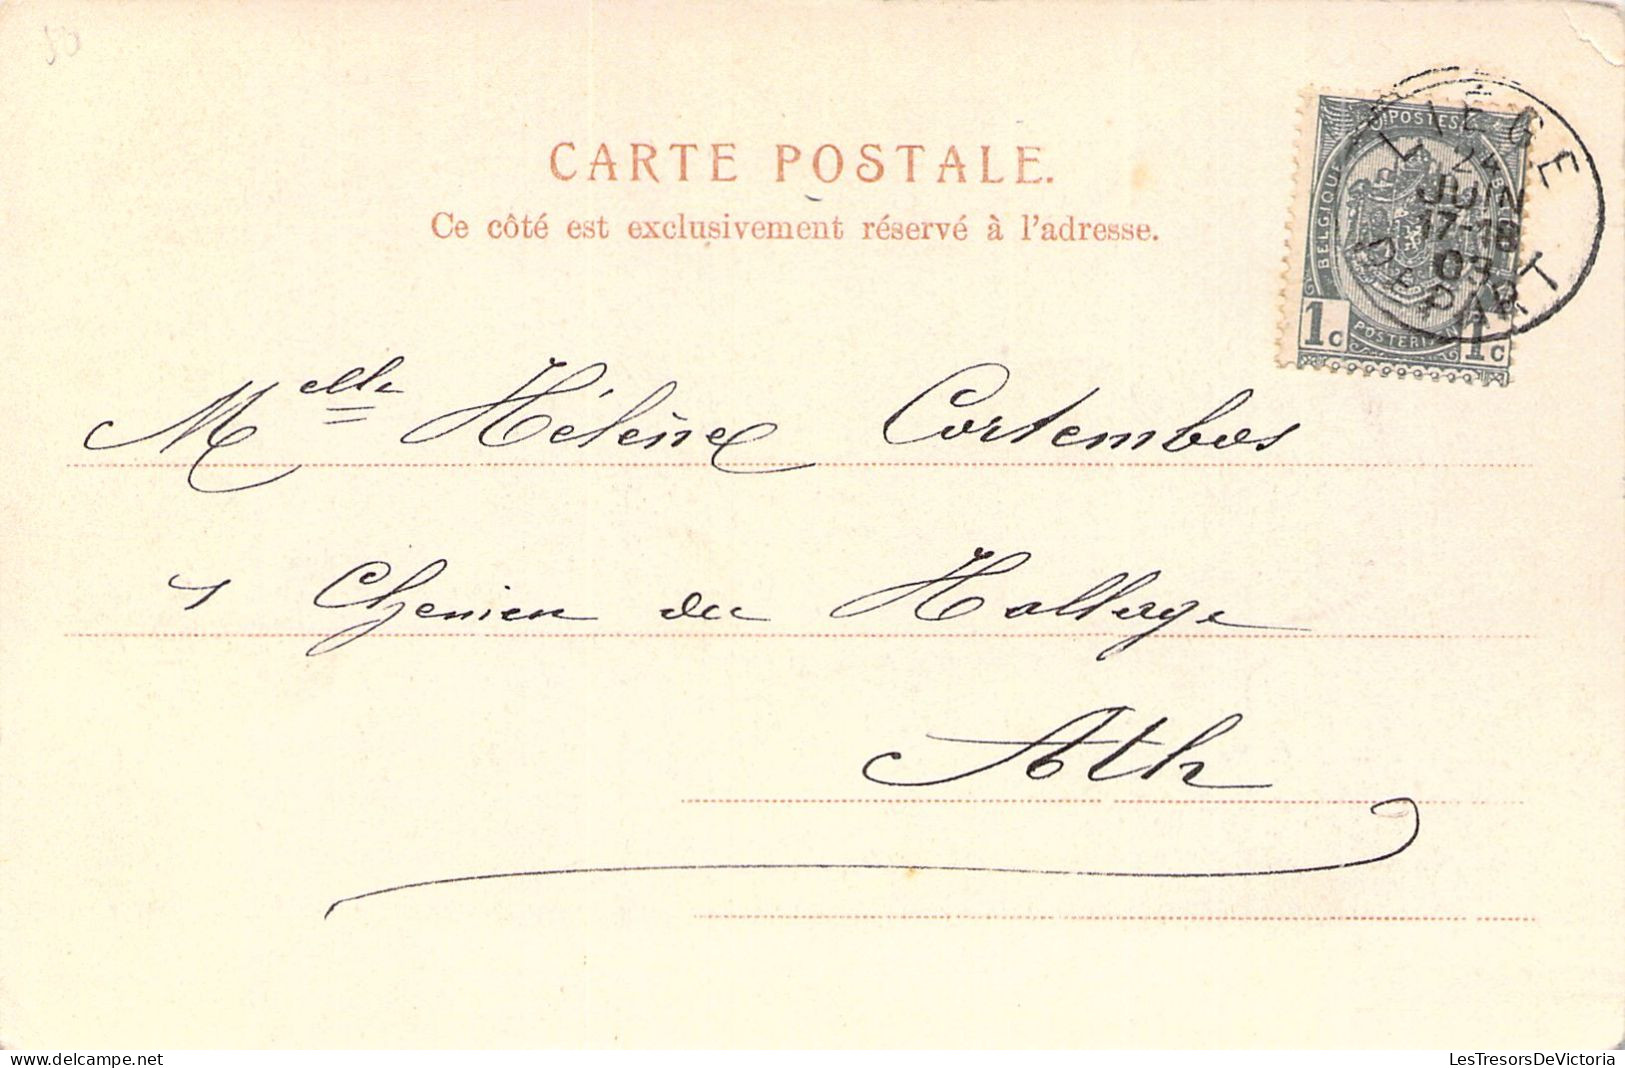 50
CARTE POSTALE.
Ce côté est exclusivement réservé à l'adresse.
POSTES
BELGIQUE
1c 1c
LIÉGE
24
JUIN
17-18
03
DÉPART
Melle Hélène Cortembos
Chemin du Hallage
Ath
www.delcampe.net
LesTresorsDeVictoria